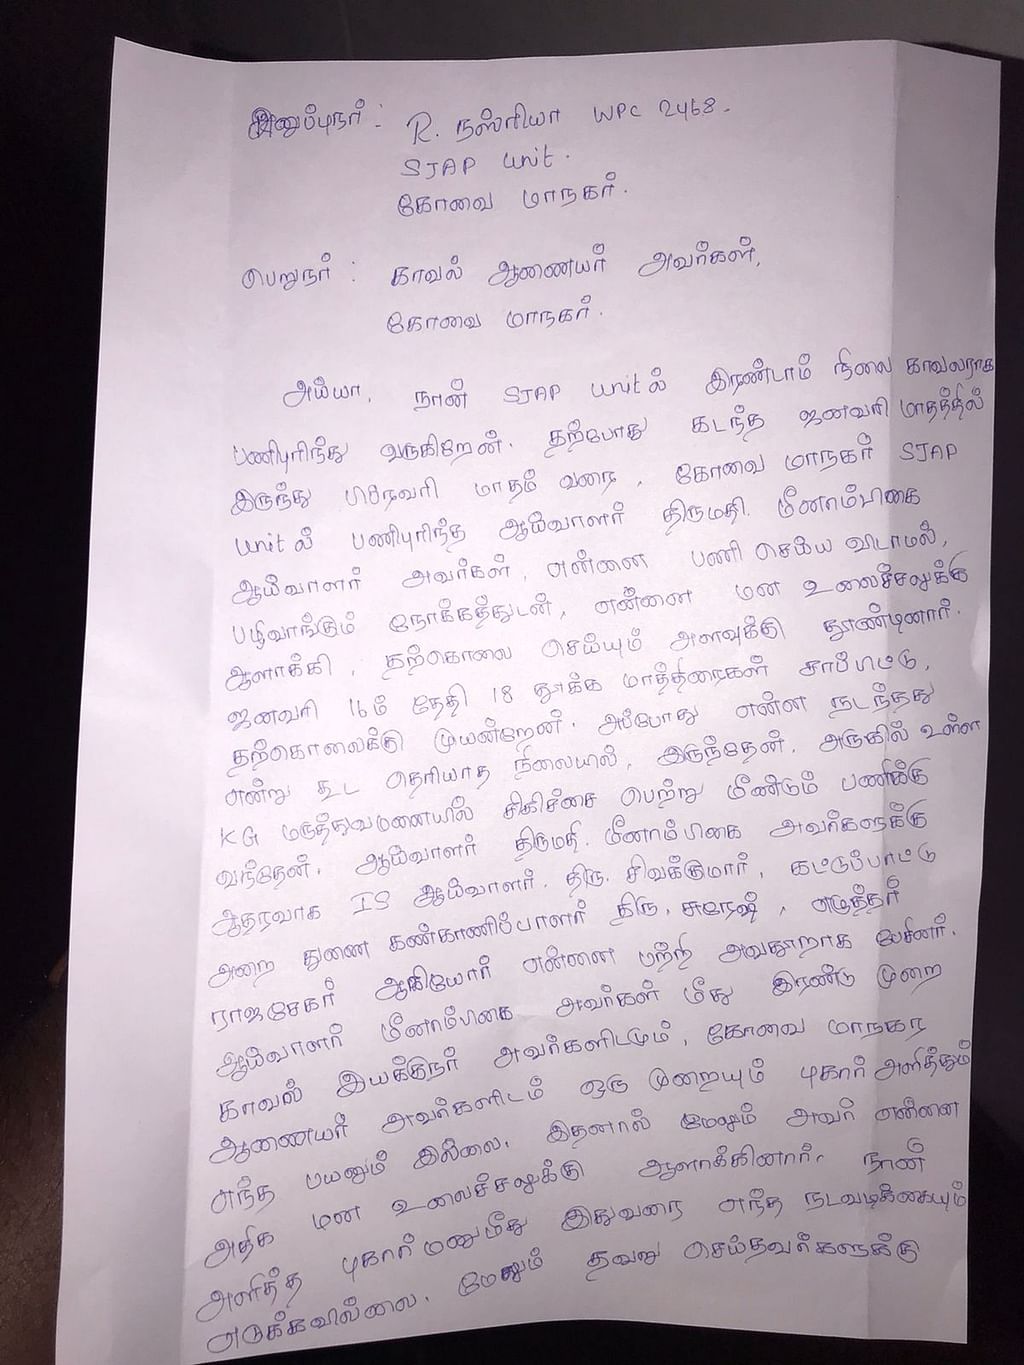 அனுப்புநர் : R. நஸ்ரியா WPC 2468.
SJAP Unit.
கோவை மாநகர்.
பெறுநர் : காவல் ஆணையர் அவர்கள்,
கோவை மாநகர்.
அய்யா, நான் SJAP Unitல் இரண்டாம் நிலை காவலராக
பணிபுரிந்து வருகிறேன். தற்போது கடந்த ஜனவரி மாதத்தில்
இருந்து பிசிரவரி மாதம் வரை, கோவை மாநகர் SJAP
Unitல் பணிபுரிந்த ஆய்வாளர் திருமதி. மீனாம்பிகை
ஆய்வாளர் அவர்கள், என்னை பணி செய்ய விடாமல்,
பழிவாங்கும் நோக்கத்துடன், என்னை மன உலைச்சலுக்கு
ஆளாக்கி, தற்கொலை செய்யும் அளவுக்கு தூண்டினார்.
ஜனவரி 16ம் தேதி 18 தூக்க மாத்திரைகள் சாப்பிட்டு,
தற்கொலைக்கு முயன்றேன். அப்போது என்ன நடந்தது
என்று கூட தெரியாத நிலையில், இருந்தேன். அருகில் உள்ள
KG மருத்துவமனையில் சிகிச்சை பெற்று மீண்டும் பணிக்கு
வந்தேன். ஆய்வாளர் திருமதி. மீனாம்பிகை அவர்களுக்கு
ஆதரவாக IS ஆய்வாளர். திரு. சிவக்குமார், கட்டுப்பாட்டு
அறை துணை கண்காணிப்பாளர் திரு. சுரேஷ், எழுத்தர்
ராஜசேகர் ஆகியோர் என்னை பற்றி அவதூறாக பேசினர்.
ஆய்வாளர் மீனாம்பிகை அவர்கள் மீது இரண்டு முறை
காவல் இயக்குநர் அவர்களிடமும், கோவை மாநகர
ஆணையர் அவர்களிடம் ஒரு முறையும் புகார் அளித்தும்
எந்த பயனும் இல்லை. இதனால் மேலும் அவர் என்னை
அதிக மன உலைச்சலுக்கு ஆளாக்கினார். நான்
அளித்த புகார் மனுமீது இதுவரை எந்த நடவடிக்கையும்
எடுக்கவில்லை. மேலும் தவறு செய்தவர்களுக்கு